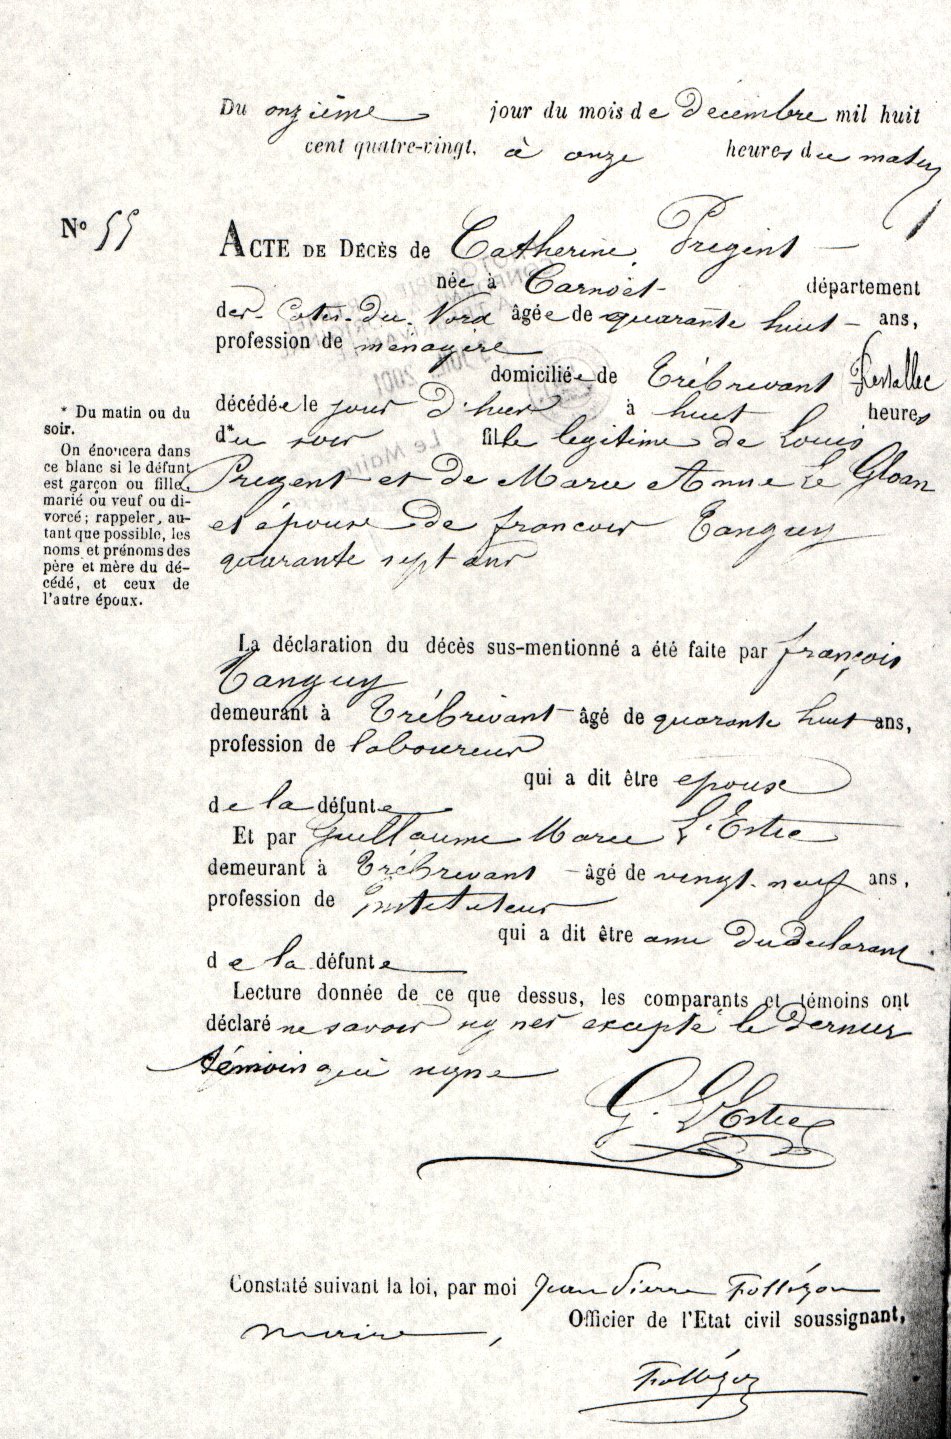 Du onzième jour du mois de Décembre mil huit
cent quatre-vingt, à onze heures du matin
No 55
ACTE DE DÉCÈS de Catherine Pregent
née à Carnoët département
des Cotes-du-Nord âgée de quarante huit ans,
profession de menagère
domiciliée de Trébrivant Kestallec
décédée le jour d'hier à huit heures
* Du matin ou du
soir.
On énoncera dans
ce blanc si le défunt
est garçon ou fille,
marié ou veuf ou di-
vorcé; rappeler, au-
tant que possible, les
noms et prénoms des
père et mère du dé-
cédé, et ceux de
l'autre époux.
d*u soir fille legitime de Louis
Pregent et de Marie Anne Le Gloan
et épouse de francois Tanguy
quarante sept ans
La déclaration du décès sus-mentionné a été faite par françois
Tanguy
demeurant à Trébrivant âgé de quarante huit ans,
profession de laboureur
qui a dit être epoux
de la défunte
Et par Guillaume Marie L'Estic
demeurant à Trébrivant âgé de vingt-neuf ans,
profession de Instituteur
qui a dit être ami du declarant
de la défunte
Lecture donnée de ce que dessus, les comparants et témoins ont
déclaré ne savoir signer excepté le dernier
témoin qui signe
G. L'Estic
Constaté suivant la loi, par moi Jean Pierre Follézou
maire, Officier de l'Etat civil soussigné,
Follézou